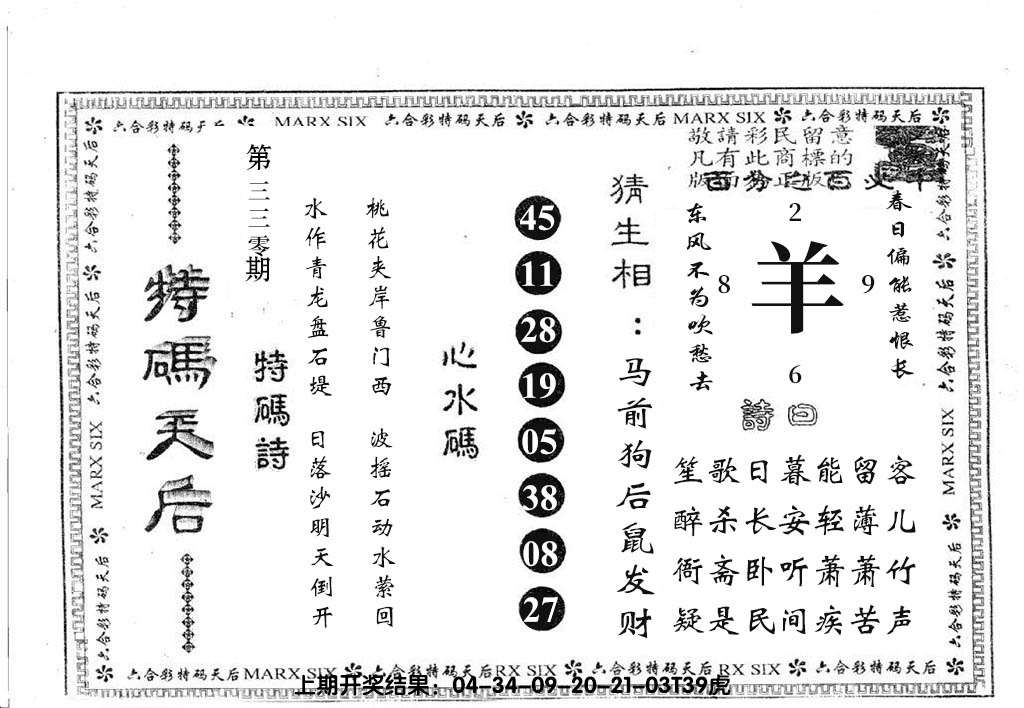 六合彩特码天后 MARX SIX 六合彩特码天后 六合彩特码天后 MARX SIX 六合彩特码天后
敬請彩民留意
凡有此商標的
版面为正版
第三三零期
特碼天后
特碼詩
水作青龙盘石堤 日落沙明天倒开
桃花夹岸鲁门西 波摇石动水萦回
心水碼
45
11
28
19
05
38
08
27
猜生相：马前狗后鼠发财
东风不为吹愁去
春日偏能惹恨长
2
8 羊 9
6
詩曰
笙歌日暮能留客
醉杀长安轻薄儿
衙斋卧听萧萧竹
疑是民间疾苦声
六合彩特码天后 MARX SIX 六合彩特码天后
六合彩特码天后 MARX SIX 六合彩特码天后
六合彩特码天后MARX SIX 六合彩特码天后RX SIX 六合彩特码天后RX SIX 六合彩特码天后
上期开奖结果：04-34-09-20-21-03T39虎